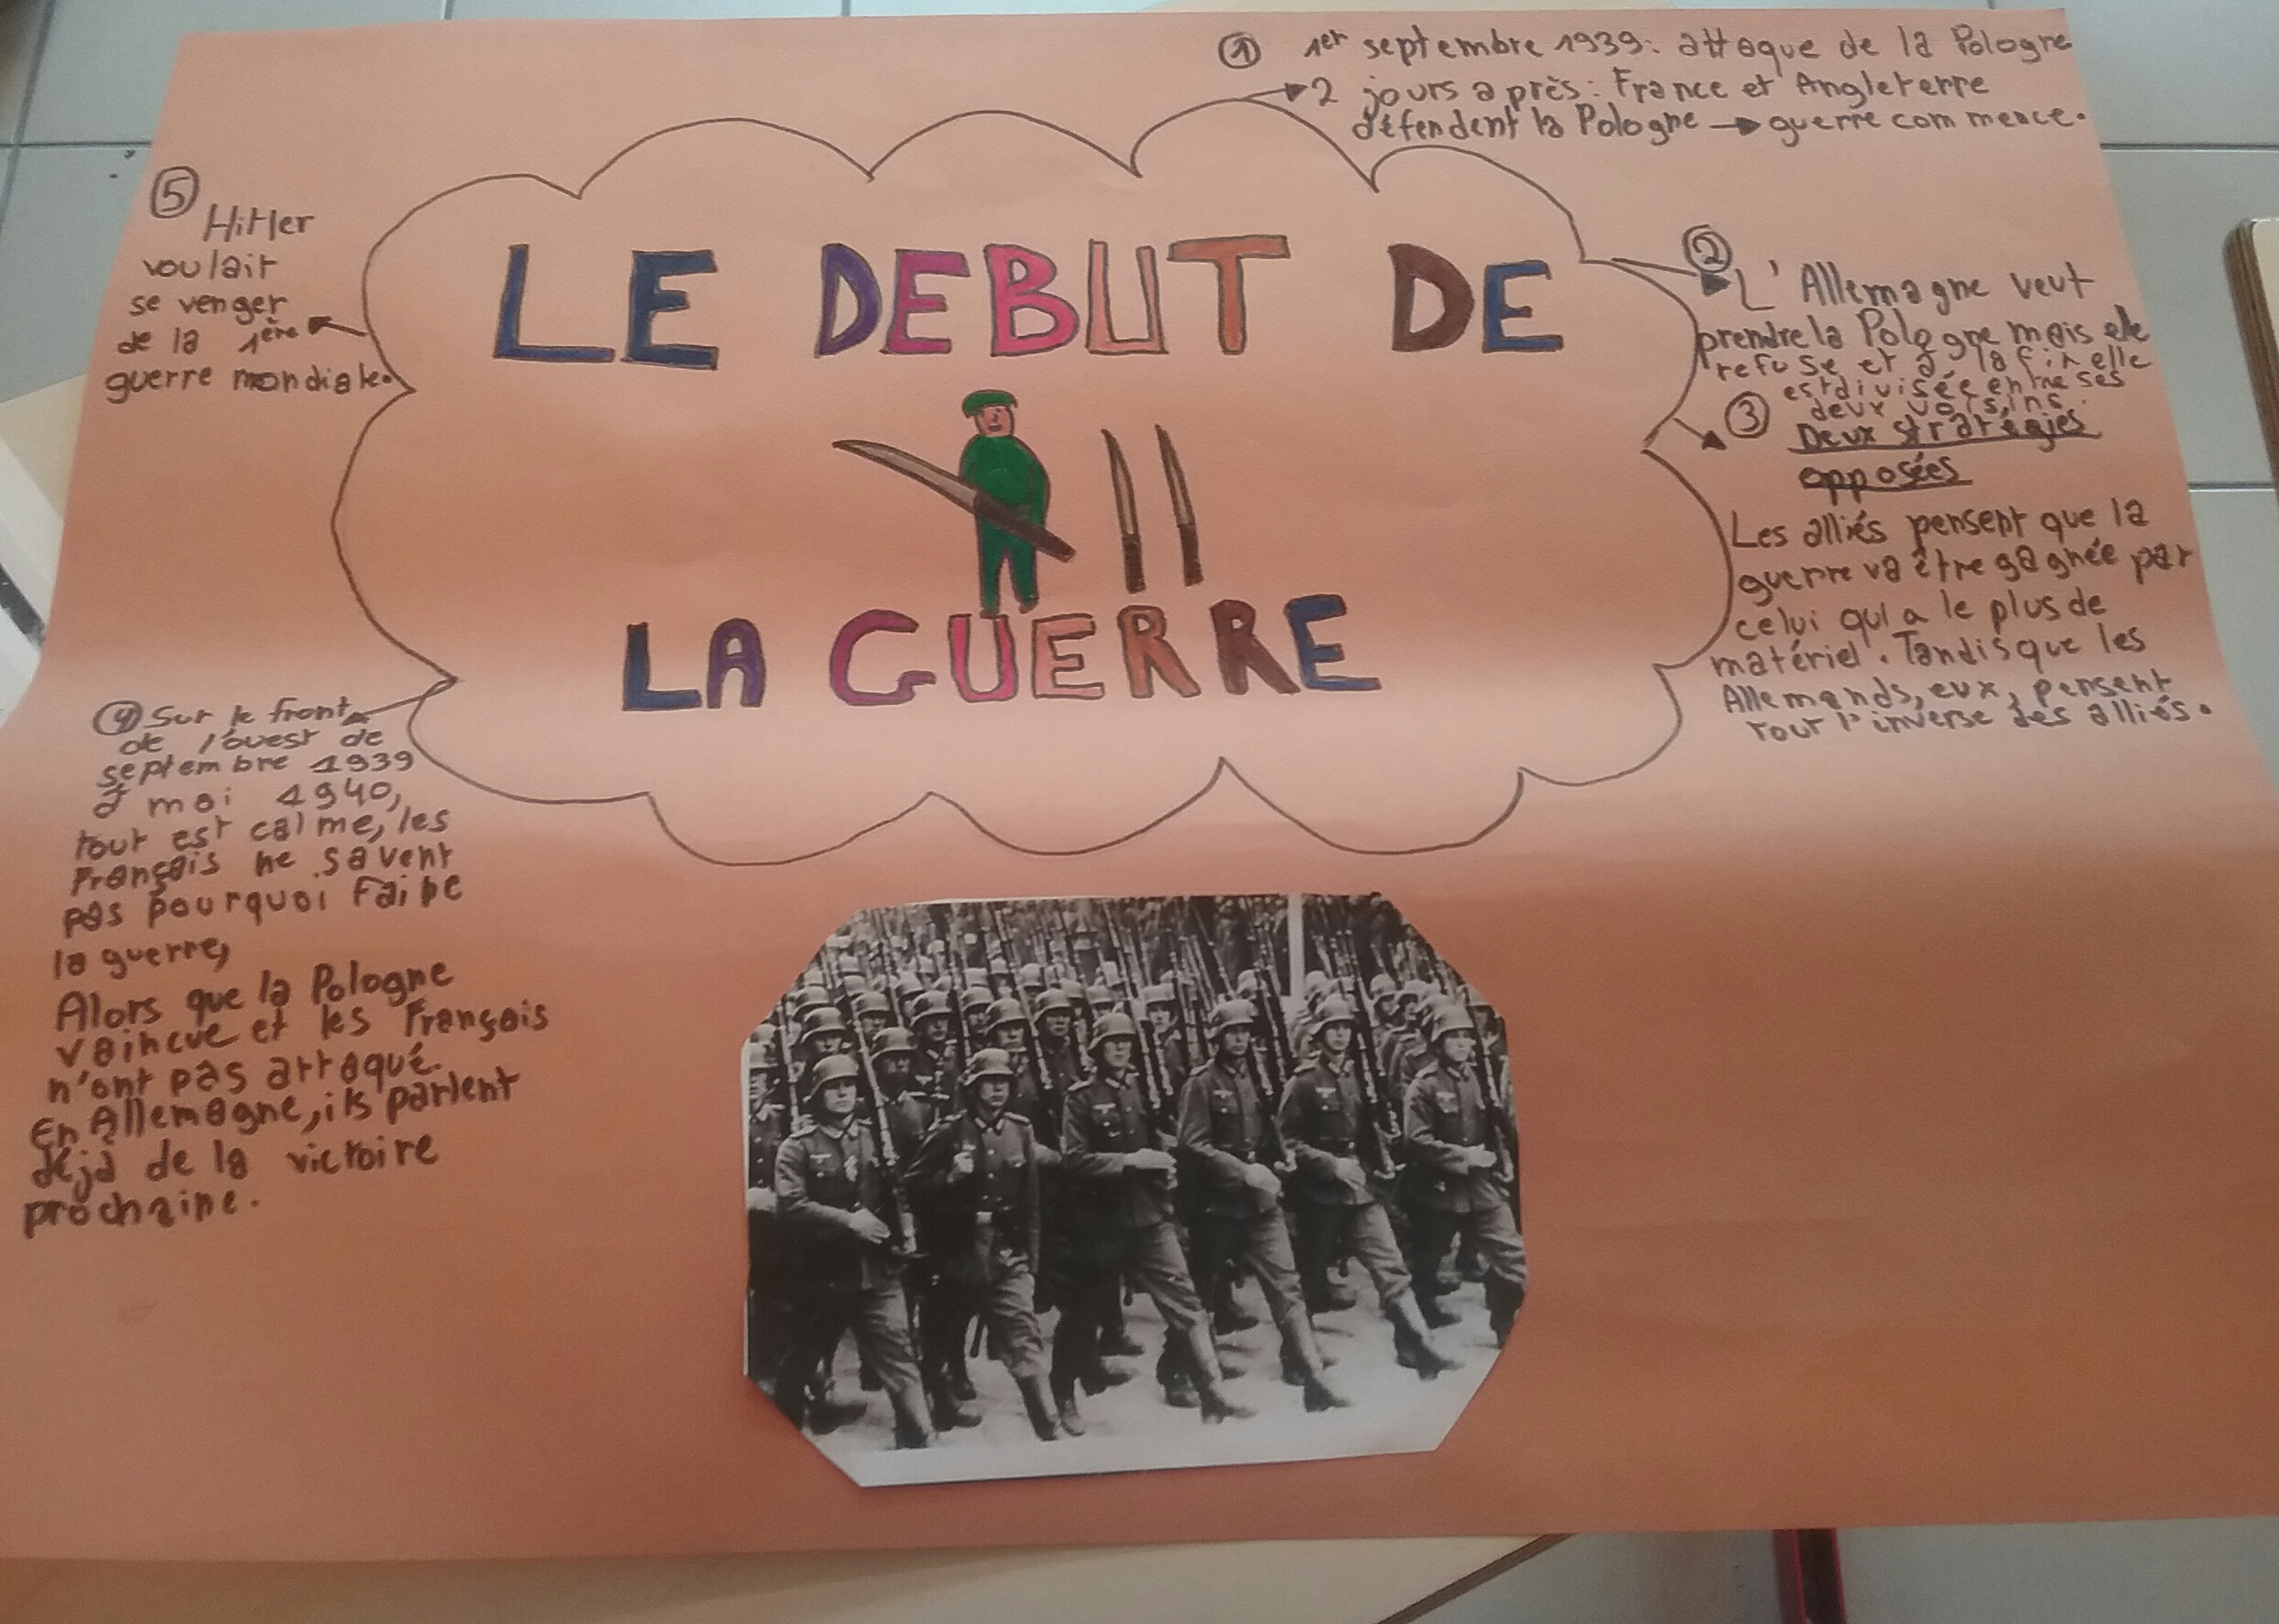 LE DEBUT DE
LA GUERRE
① 1er septembre 1939: attaque de la Pologne
2 jours après: France et Angleterre
défendent la Pologne → guerre commence.
②
L'Allemagne veut
prendre la Pologne mais elle
refuse et à la fin elle
est divisée entre ses
deux voisins.
③ Deux stratégies
opposées
Les alliés pensent que la
guerre va être gagnée par
celui qui a le plus de
matériel. Tandis que les
Allemands, eux, pensent
tout l'inverse des alliés.
④ Sur le front
de l'ouest de
septembre 1939
à mai 1940,
tout est calme, les
Français ne savent
pas pourquoi faire
la guerre,
Alors que la Pologne
vaincue et les Français
n'ont pas attaqué.
En Allemagne, ils parlent
déjà de la victoire
prochaine.
⑤
Hitler
voulait
se venger
de la 1ère
guerre mondiale.